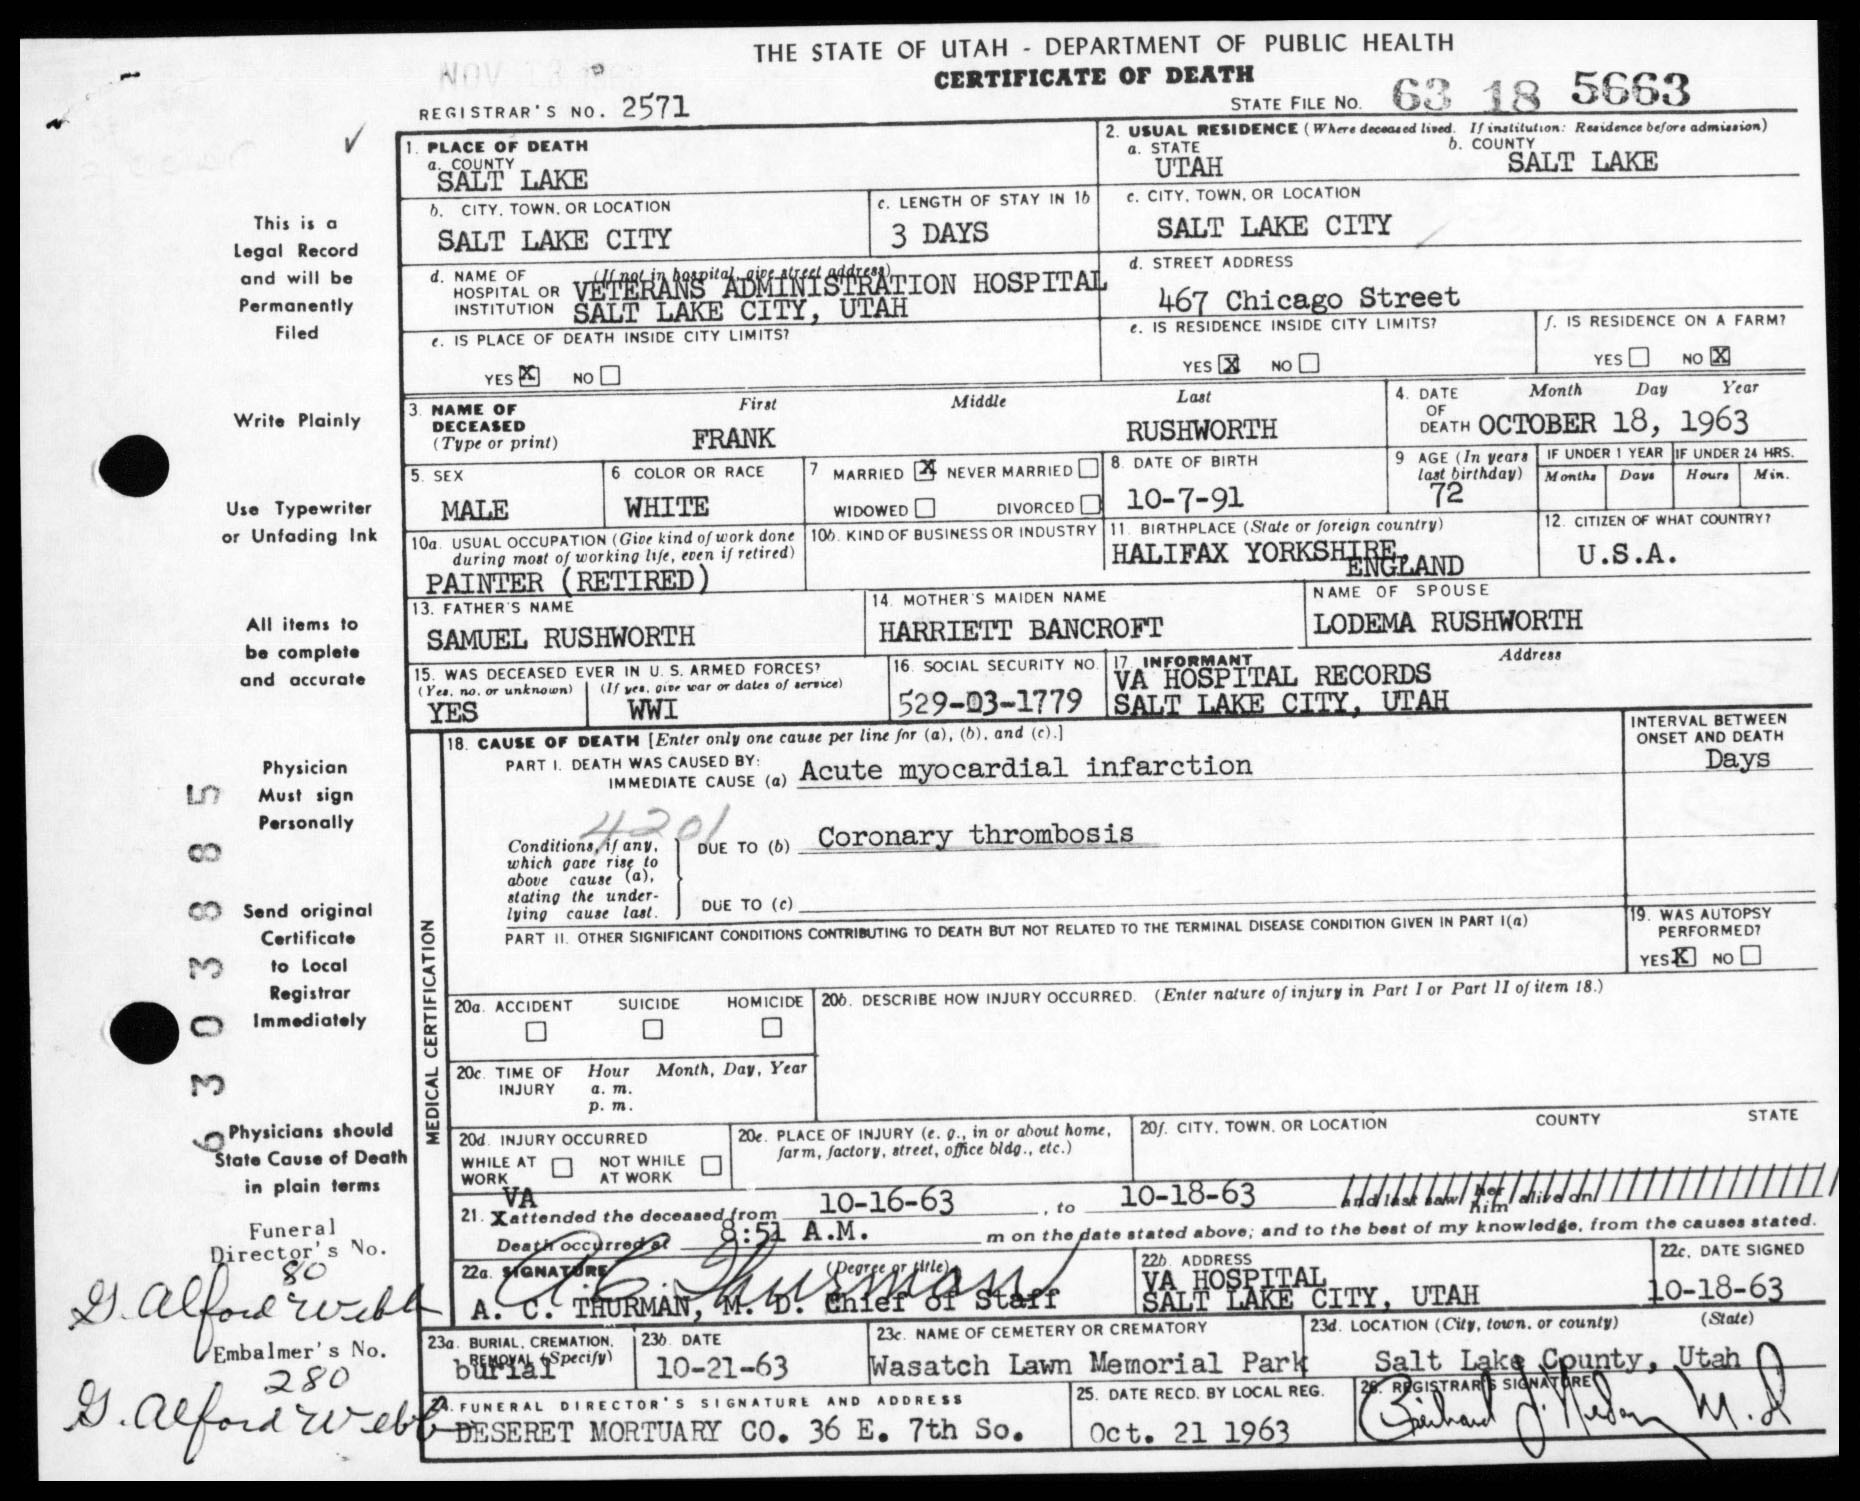 THE STATE OF UTAH - DEPARTMENT OF PUBLIC HEALTH
CERTIFICATE OF DEATH
NOV 18
REGISTRAR'S NO. 2571
STATE FILE NO. 63 18 5663
1. PLACE OF DEATH
a. COUNTY
SALT LAKE
2. USUAL RESIDENCE (Where deceased lived. If institution: Residence before admission)
a. STATE b. COUNTY
UTAH SALT LAKE
b. CITY, TOWN, OR LOCATION
SALT LAKE CITY
c. LENGTH OF STAY IN 1b
3 DAYS
c. CITY, TOWN, OR LOCATION
SALT LAKE CITY
d. NAME OF HOSPITAL OR INSTITUTION (If not in hospital, give street address)
VETERANS ADMINISTRATION HOSPITAL
SALT LAKE CITY, UTAH
d. STREET ADDRESS
467 Chicago Street
e. IS PLACE OF DEATH INSIDE CITY LIMITS?
YES X NO
e. IS RESIDENCE INSIDE CITY LIMITS?
YES X NO
f. IS RESIDENCE ON A FARM?
YES NO X
3. NAME OF DECEASED (Type or print)
First Middle Last
FRANK RUSHWORTH
4. DATE OF DEATH
Month Day Year
OCTOBER 18, 1963
5. SEX
MALE
6 COLOR OR RACE
WHITE
7 MARRIED X NEVER MARRIED
WIDOWED DIVORCED
8. DATE OF BIRTH
10-7-91
9 AGE (In years last birthday)
72
IF UNDER 1 YEAR
Months Days
IF UNDER 24 HRS.
Hours Min.
10a. USUAL OCCUPATION (Give kind of work done
during most of working life, even if retired)
PAINTER (RETIRED)
10b. KIND OF BUSINESS OR INDUSTRY
11. BIRTHPLACE (State or foreign country)
HALIFAX YORKSHIRE,
ENGLAND
12. CITIZEN OF WHAT COUNTRY?
U.S.A.
13. FATHER'S NAME
SAMUEL RUSHWORTH
14. MOTHER'S MAIDEN NAME
HARRIETT BANCROFT
NAME OF SPOUSE
LODEMA RUSHWORTH
15. WAS DECEASED EVER IN U. S. ARMED FORCES?
(Yes, no, or unknown) (If yes, give war or dates of service)
YES WWI
16. SOCIAL SECURITY NO.
529-03-1779
17. INFORMANT Address
VA HOSPITAL RECORDS
SALT LAKE CITY, UTAH
MEDICAL CERTIFICATION
18. CAUSE OF DEATH [Enter only one cause per line for (a), (b), and (c).]
PART I. DEATH WAS CAUSED BY:
IMMEDIATE CAUSE (a) Acute myocardial infarction
INTERVAL BETWEEN
ONSET AND DEATH
Days
4201
Conditions, if any,
which gave rise to
above cause (a),
stating the under-
lying cause last.
DUE TO (b) Coronary thrombosis
DUE TO (c)
PART II. OTHER SIGNIFICANT CONDITIONS CONTRIBUTING TO DEATH BUT NOT RELATED TO THE TERMINAL DISEASE CONDITION GIVEN IN PART I(a)
19. WAS AUTOPSY
PERFORMED?
YES X NO
20a. ACCIDENT SUICIDE HOMICIDE
20b. DESCRIBE HOW INJURY OCCURRED. (Enter nature of injury in Part I or Part II of item 18.)
20c. TIME OF INJURY
Hour Month, Day, Year
a. m.
p. m.
20d. INJURY OCCURRED
WHILE AT WORK NOT WHILE AT WORK
20e. PLACE OF INJURY (e. g., in or about home,
farm, factory, street, office bldg., etc.)
20f. CITY, TOWN, OR LOCATION COUNTY STATE
VA
21. X attended the deceased from 10-16-63, to 10-18-63 and last saw her him alive on
Death occurred at 8:51 A.M. m on the date stated above; and to the best of my knowledge, from the causes stated.
22a. SIGNATURE (Degree or title)
A C Thurman
A. C. THURMAN, M. D. Chief of Staff
22b. ADDRESS
VA HOSPITAL
SALT LAKE CITY, UTAH
22c. DATE SIGNED
10-18-63
23a. BURIAL, CREMATION,
REMOVAL (Specify)
burial
23b. DATE
10-21-63
23c. NAME OF CEMETERY OR CREMATORY
Wasatch Lawn Memorial Park
23d. LOCATION (City, town, or county) (State)
Salt Lake County, Utah
24. FUNERAL DIRECTOR'S SIGNATURE AND ADDRESS
DESERET MORTUARY CO. 36 E. 7th So.
25. DATE RECD. BY LOCAL REG.
Oct. 21 1963
26. REGISTRAR'S SIGNATURE
M.D
This is a
Legal Record
and will be
Permanently
Filed
Write Plainly
Use Typewriter
or Unfading Ink
All items to
be complete
and accurate
Physician
Must sign
Personally
Send original
Certificate
to Local
Registrar
Immediately
Physicians should
State Cause of Death
in plain terms
6303885
Funeral
Director's No.
80
G. Alford Webb
Embalmer's No.
280
G. Alford Webb